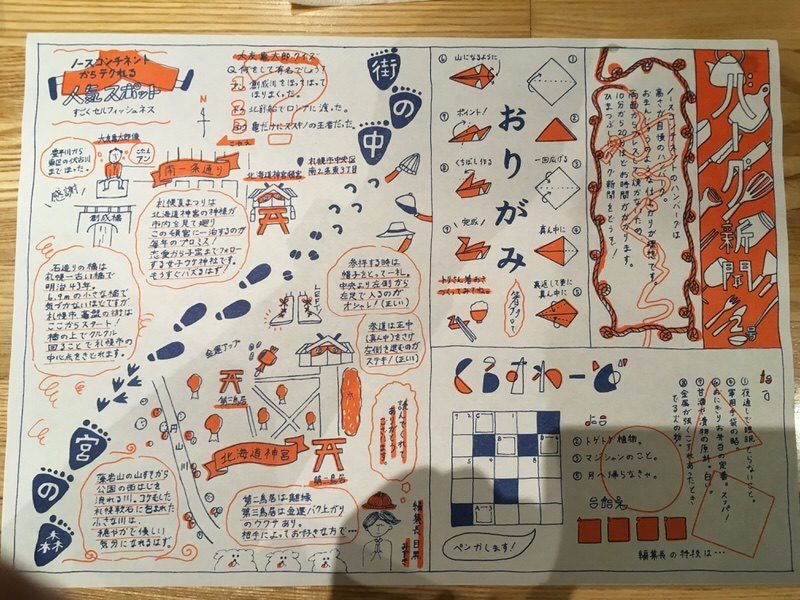 ノースコンチネント
からテクれる
人気スポット
すごくセルフィッシュネス
大友亀太郎クイズ
Q.何をして有名でしょう
創成川をほっぽって
ほりまくった。
北針船でロンゲに渡った。
亀だけにススキノの王者だった。
こたえ
N
街の中
大友亀太郎像
豊平川から
東区の伏古川
までほった。
こたん
アン
感謝!
創成橋
南一条通り
北海道神宮頓宮
札幌市中央区
南2条東3丁目
札幌まつりは
北海道神宮の神様が
市内を見て廻り
この頓宮に一泊するのが
毎年のプロミス!
恋愛から子宝までフォロー
する女子ウケ神社です。
もうすぐバズるはず!
石造りの橋は
札幌一古い橋で
明治43年。
6.9mの小さな橋で
気づかないほどですが
札幌市、碁盤の街は
ここからスタート!
橋の上でクルクル
回ることで札幌市の
中心点をきどれます。
参拝する時は
帽子をとって一礼。
中央より左側から
左足で入るのが
オシャレ!(正しい)
LEFT
参道は正中
(真ん中)をさけ
左側を進むのが
ステキ!(正しい)
金運アップ
第三鳥居
円山川
北海道神宮
第二鳥居
読んでくれて
ありがとう
宮の森
藻岩山の山すそから
公園の西はじを
流れる川。コケむした
札幌軟石に包まれた
小さな川は、
穏やかで優しい
気分になれるはず。
第二鳥居は離縁
第三鳥居は金運バク上がり
のウワサあり。
相手によってお好きな方で…
編集長日黒
みすず
おりがみ
①
②
一回広げる
③
真ん中に
④
裏返して更に
真ん中に
⑤
⑥
山になるように
⑦
ポイント!
⑧
くちばし作る
⑨
完成!
トリさん箸おき
つくってみてね。
箸袋で
ハンバーグ新聞
2号
ノースコンチネントのハンバーグは
高さが自慢のハンバーグ。
10分から20分ほどお時間かかります。
ひまつぶしにハンバーグ新聞をどうぞ!
くろすわーど
よこ
②トゲトゲ植物。
③マンションのこと。
⑤月へ帰らなきゃ。
①夜通しで睡眠とらないこと。
④軍用手袋の略
⑥おにぎりお弁当の定番。スッパ!
⑦甘酒や漬物の原料。白い。
⑧金属が強くこすれあったとき
でる火の粉。
編集長の特技は…
ペンがします!